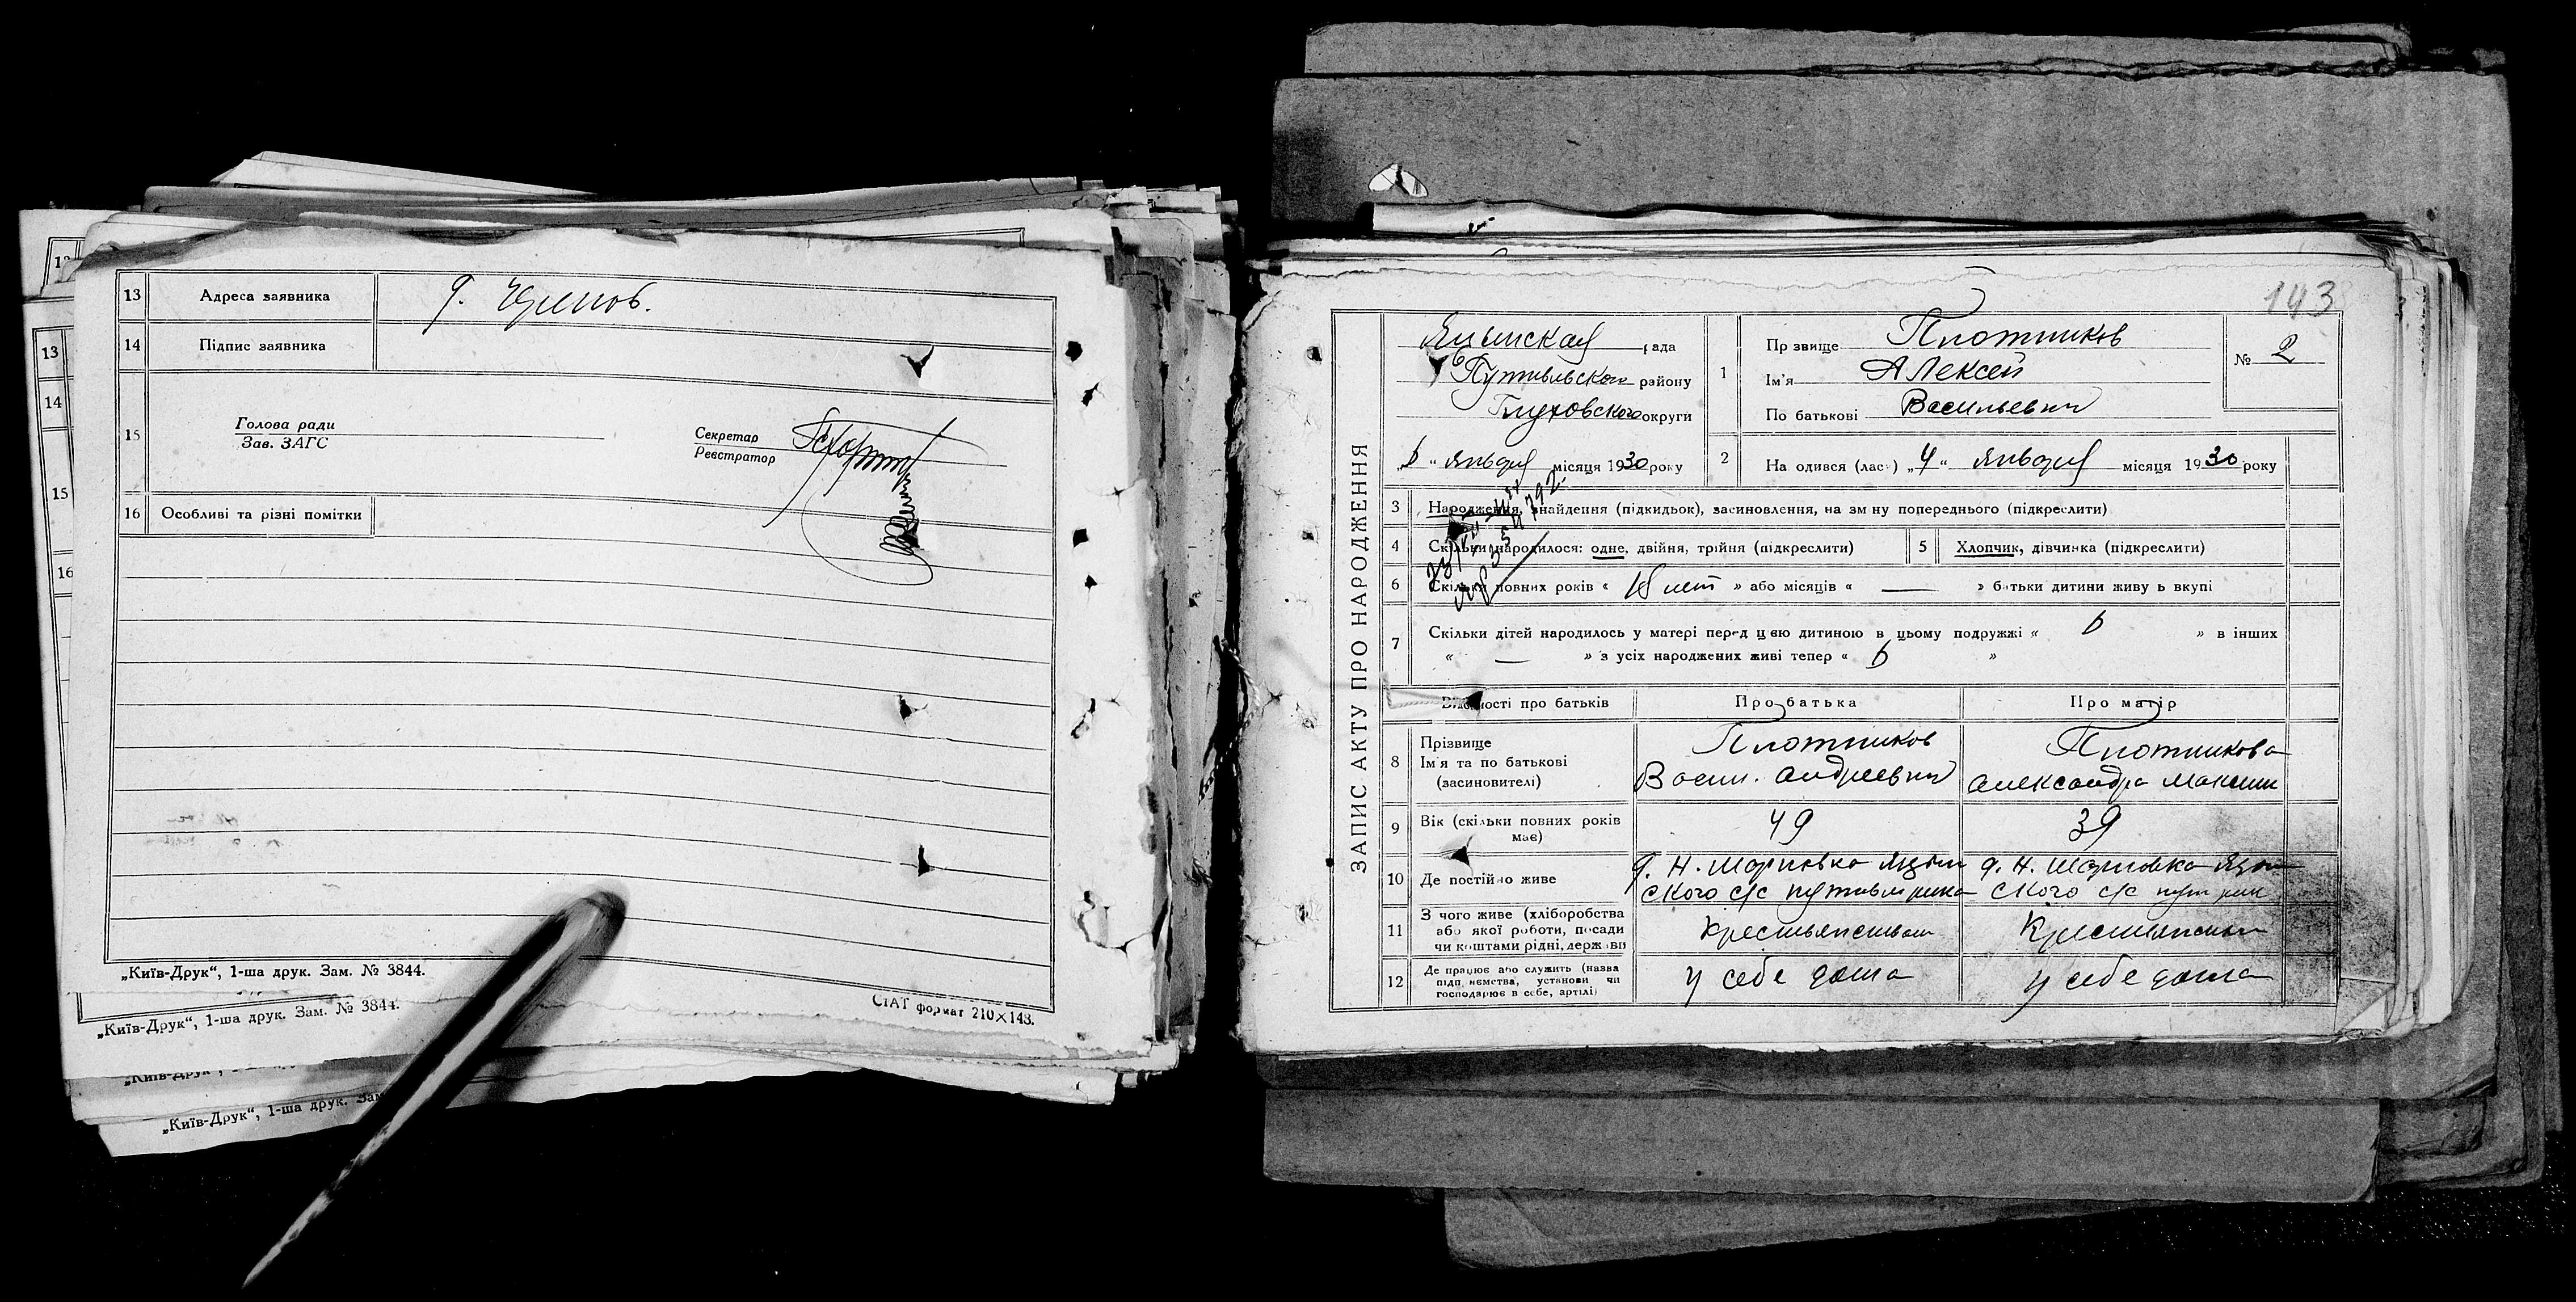 13 Адреса заявника
14 Підпис заявника
15 Голова ради
Зав. ЗАГС
Секретар
Реєстратор
16 Особливі та різні помітки
„Київ-Друк“, 1-ша друк. Зам. № 3844.
СТАТ формат 210×148.
„Київ-Друк“, 1-ша друк. Зам. № 3844.
„Київ-Друк“, 1-ша друк. Зам
13
14
15
16
143
ЗАПИС АКТУ ПРО НАРОДЖЕННЯ
рада
Путивльского району
Глуховского округи
„6“ января місяця 1930 року
1 Прізвище Плотников
Ім'я Алексей
По батькові Васильевич
№ 2
2 На одився (лась) „4“ января місяця 1930 року
3 Народження, знайдення (підкидьок), засиновлення, на зміну попереднього (підкреслити)
4 Скільки народилося: одне, двійня, трійня (підкреслити)
5 Хлопчик, дівчинка (підкреслити)
6 Скільки повних років « 18 лет » або місяців « — » батьки дитини живуть вкупі
7 Скільки дітей народилось у матері перед цією дитиною в цьому подружжі « 6 » в інших
« — » з усіх народжених живі тепер « 6 »
Відомості про батьків
Про батька
Про матір
8 Прізвище
Ім'я та по батькові
(засиновителі)
Плотников
Васил. Андреевич
Плотникова
Александра Максим
9 Вік (скільки повних років
має)
49
39
10 Де постійно живе
ского с/с
ского с/с
11 З чого живе (хліборобства
або якої роботи, посади
чи коштами рідні, держави
Крестьянством
Крестьянством
12 Де працює або служить (назва
підприємства, установи чи
господарює в себе, артілі)
у себе дома
у себе дома